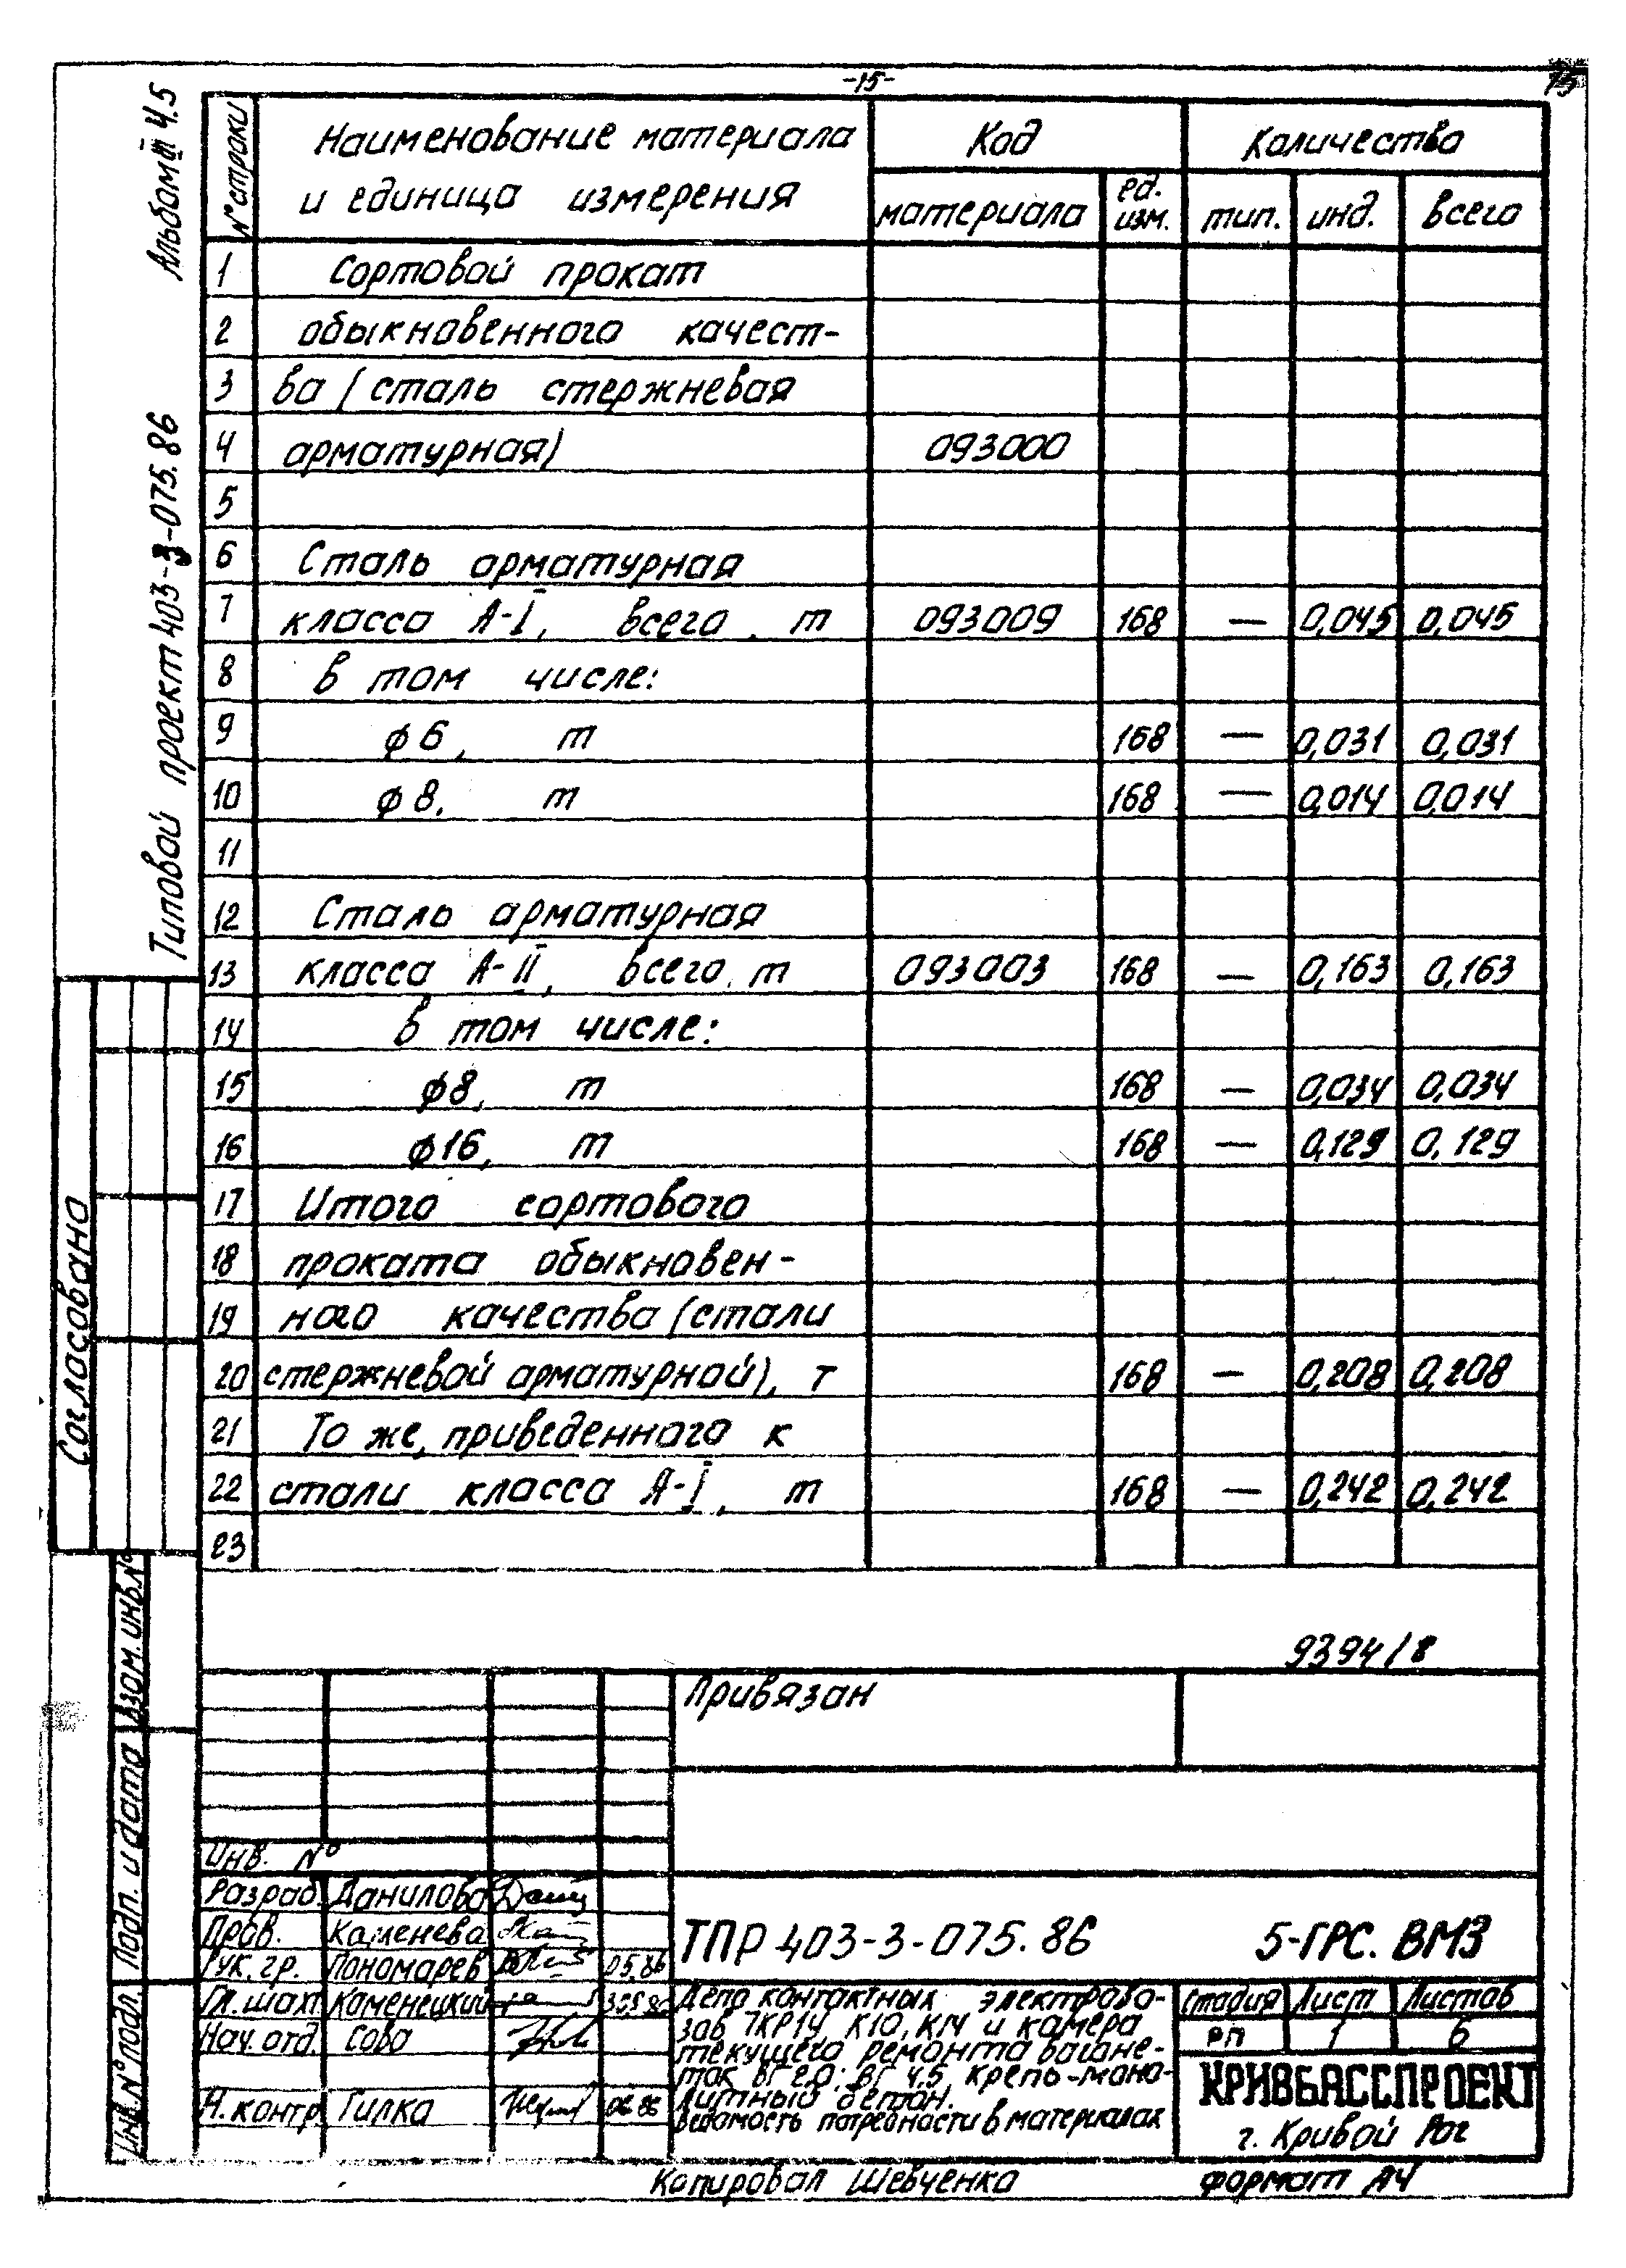 -15-
15
Альбом III 4.5
Типовой проект 403-3-075.86
№ строки
Наименование материала
и единица измерения
Код
Количество
материала
ед.
изм.
тип.
инд.
всего
1 Сортовой прокат
2 обыкновенного качест-
3 ва (сталь стержневая
4 арматурная) 093000
5
6 Сталь арматурная
7 класса А-I, всего, т 093009 168 — 0,045 0,045
8 в том числе:
9 ф6, т 168 — 0,031 0,031
10 ф8, т 168 — 0,014 0,014
11
12 Сталь арматурная
13 класса А-II, всего, т 093003 168 — 0,163 0,163
14 в том числе:
15 ф8, т 168 — 0,034 0,034
16 ф16, т 168 — 0,129 0,129
17 Итого сортового
18 проката обыкновен-
19 ного качества (стали
20 стержневой арматурной), т 168 — 0,208 0,208
21 То же, приведенного к
22 стали класса А-I, т 168 — 0,242 0,242
23
Согласовано
Взам. инв.№
Подп. и дата
Инв.№ подл.
9394/8
Привязан
Инв. №
Разраб. Данилова
Пров. Каменева
Рук. гр. Пономарев 05.86
Гл. шахт. Каменецкий
Нач. отд. Сова
Н. контр Гилка 06.86
ТПР 403-3-075.86 5-ГРС. ВМ3
Депо контактных электрово-
зов 7КР14, К10, К14 и камера
текущего ремонта вагоне-
ток ВГ 2.0; ВГ 4,5, крепь-моно-
литный бетон.
Ведомость потребности в материалах
Стадия Лист Листов
РП 1 6
КРИВБАССПРОЕКТ
г. Кривой Рог
Копировал Шевченко
Формат А4